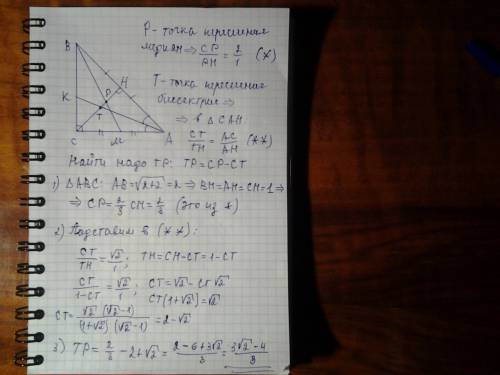 P - точка пересечения
медиан ⇒ CP/PH = 2/1 (*)
T - точка пересечения
биссектрис ⇒
⇒ в △CAH:
CT/TH = AC/AH (**)
B
H
K
P
T
C
M
A
Найти надо TP: TP = CP - CT
1) △ABC: AB = √(2+2) = 2 ⇒ BH = AH = CH = 1 ⇒
⇒ CP = 2/3 CH = 2/3 (это из *)
2) Подставим в (**):
CT/TH = √2/1; TH = CH - CT = 1 - CT
CT/(1-CT) = √2/1; CT = √2 - CT√2
CT(1+√2) = √2
CT = √2(√2-1)/((1+√2)(√2-1)) = 2 - √2
3) TP = 2/3 - 2 + √2 = (2-6+3√2)/3 = (3√2-4)/3